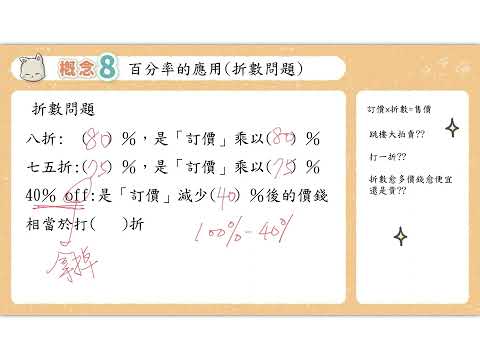 概念8 百分率的應用(折數問題)
折數問題
八折:(80)%,是「訂價」乘以(80)%
七五折:(75)%,是「訂價」乘以(75)%
40% off:是「訂價」減少(40)%後的價錢
相當於打( )折
100%-40%
拿掉
訂價x折數=售價
跳樓大拍賣??
打一折??
折數愈多價錢愈便宜
還是貴??